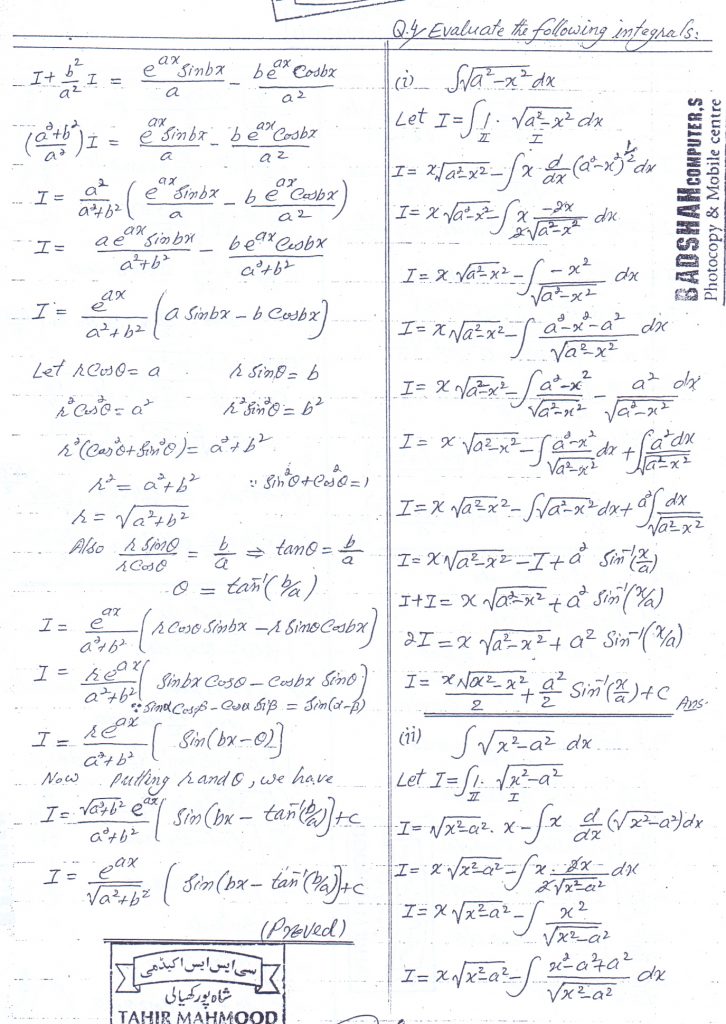 I + b²/a² I = e^ax Sinbx/a - be^ax Cosbx/a²
(a²+b²/a²)I = e^ax Sinbx/a - be^ax Cosbx/a²
I = a²/a²+b² (e^ax Sinbx/a - be^ax Cosbx/a²)
I = ae^ax Sinbx/a²+b² - be^ax Cosbx/a²+b²
I = e^ax/a²+b² (a Sinbx - b Cosbx]
Let rCosθ = a rSinθ = b
r²Cos²θ = a² r²Sin²θ = b²
r²(Cos²θ + Sin²θ) = a²+b²
r² = a²+b² ∵ Sin²θ + Cos²θ = 1
r = √a²+b²
Also rSinθ/rCosθ = b/a ⇒ tanθ = b/a
θ = tan⁻¹(b/a)
I = e^ax/a²+b² (rCosθ Sinbx - rSinθ Cosbx]
I = re^ax/a²+b² [Sinbx Cosθ - Cosbx Sinθ]
∵ Sinα Cosβ - Cosα Siβ = Sin(α-β)
I = re^ax/a²+b² [Sin(bx - θ)]
Now putting r and θ, we have
I = √a²+b² e^ax/a²+b² [Sin(bx - tan⁻¹(b/a)]+c
I = e^ax/√a²+b² (Sin(bx - tan⁻¹(b/a)]+c
(Proved)
سی ایس ایس اکیڈمی
شاہ پور کھیالی
TAHIR MAHMOOD
Q.4 Evaluate the following integrals:
(i) ∫√a²-x² dx
Let I = ∫1. √a²-x² dx
II I
I = x√a²-x² - ∫x. d/dx (a²-x²)^1/2 dx
I = x√a²-x² - ∫x -2x/2√a²-x² dx
I = x√a²-x² - ∫-x²/√a²-x² dx
I = x√a²-x² - ∫a²-x²-a²/√a²-x² dx
I = x√a²-x² - ∫a²-x²/√a²-x² - a² dx/√a²-x²
I = x√a²-x² - ∫a²-x²/√a²-x² dx + ∫a²dx/√a²-x²
I = x√a²-x² - ∫√a²-x² dx + a²∫dx/√a²-x²
I = x√a²-x² - I + a² Sin⁻¹(x/a)
I+I = x√a²-x² + a² Sin⁻¹(x/a)
2I = x√a²-x² + a² Sin⁻¹(x/a)
I = x√a²-x²/2 + a²/2 Sin⁻¹(x/a) + c Ans.
(ii) ∫√x²-a² dx
Let I = ∫1. √x²-a²
II I
I = √x²-a². x - ∫x d/dx (√x²-a²)dx
I = x√x²-a² - ∫x. 2x/2√x²-a² dx
I = x√x²-a² - ∫x²/√x²-a²
I = x√x²-a² - ∫x²-a²+a²/√x²-a² dx
BADSHAH COMPUTER,S
Photocopy & Mobile centre